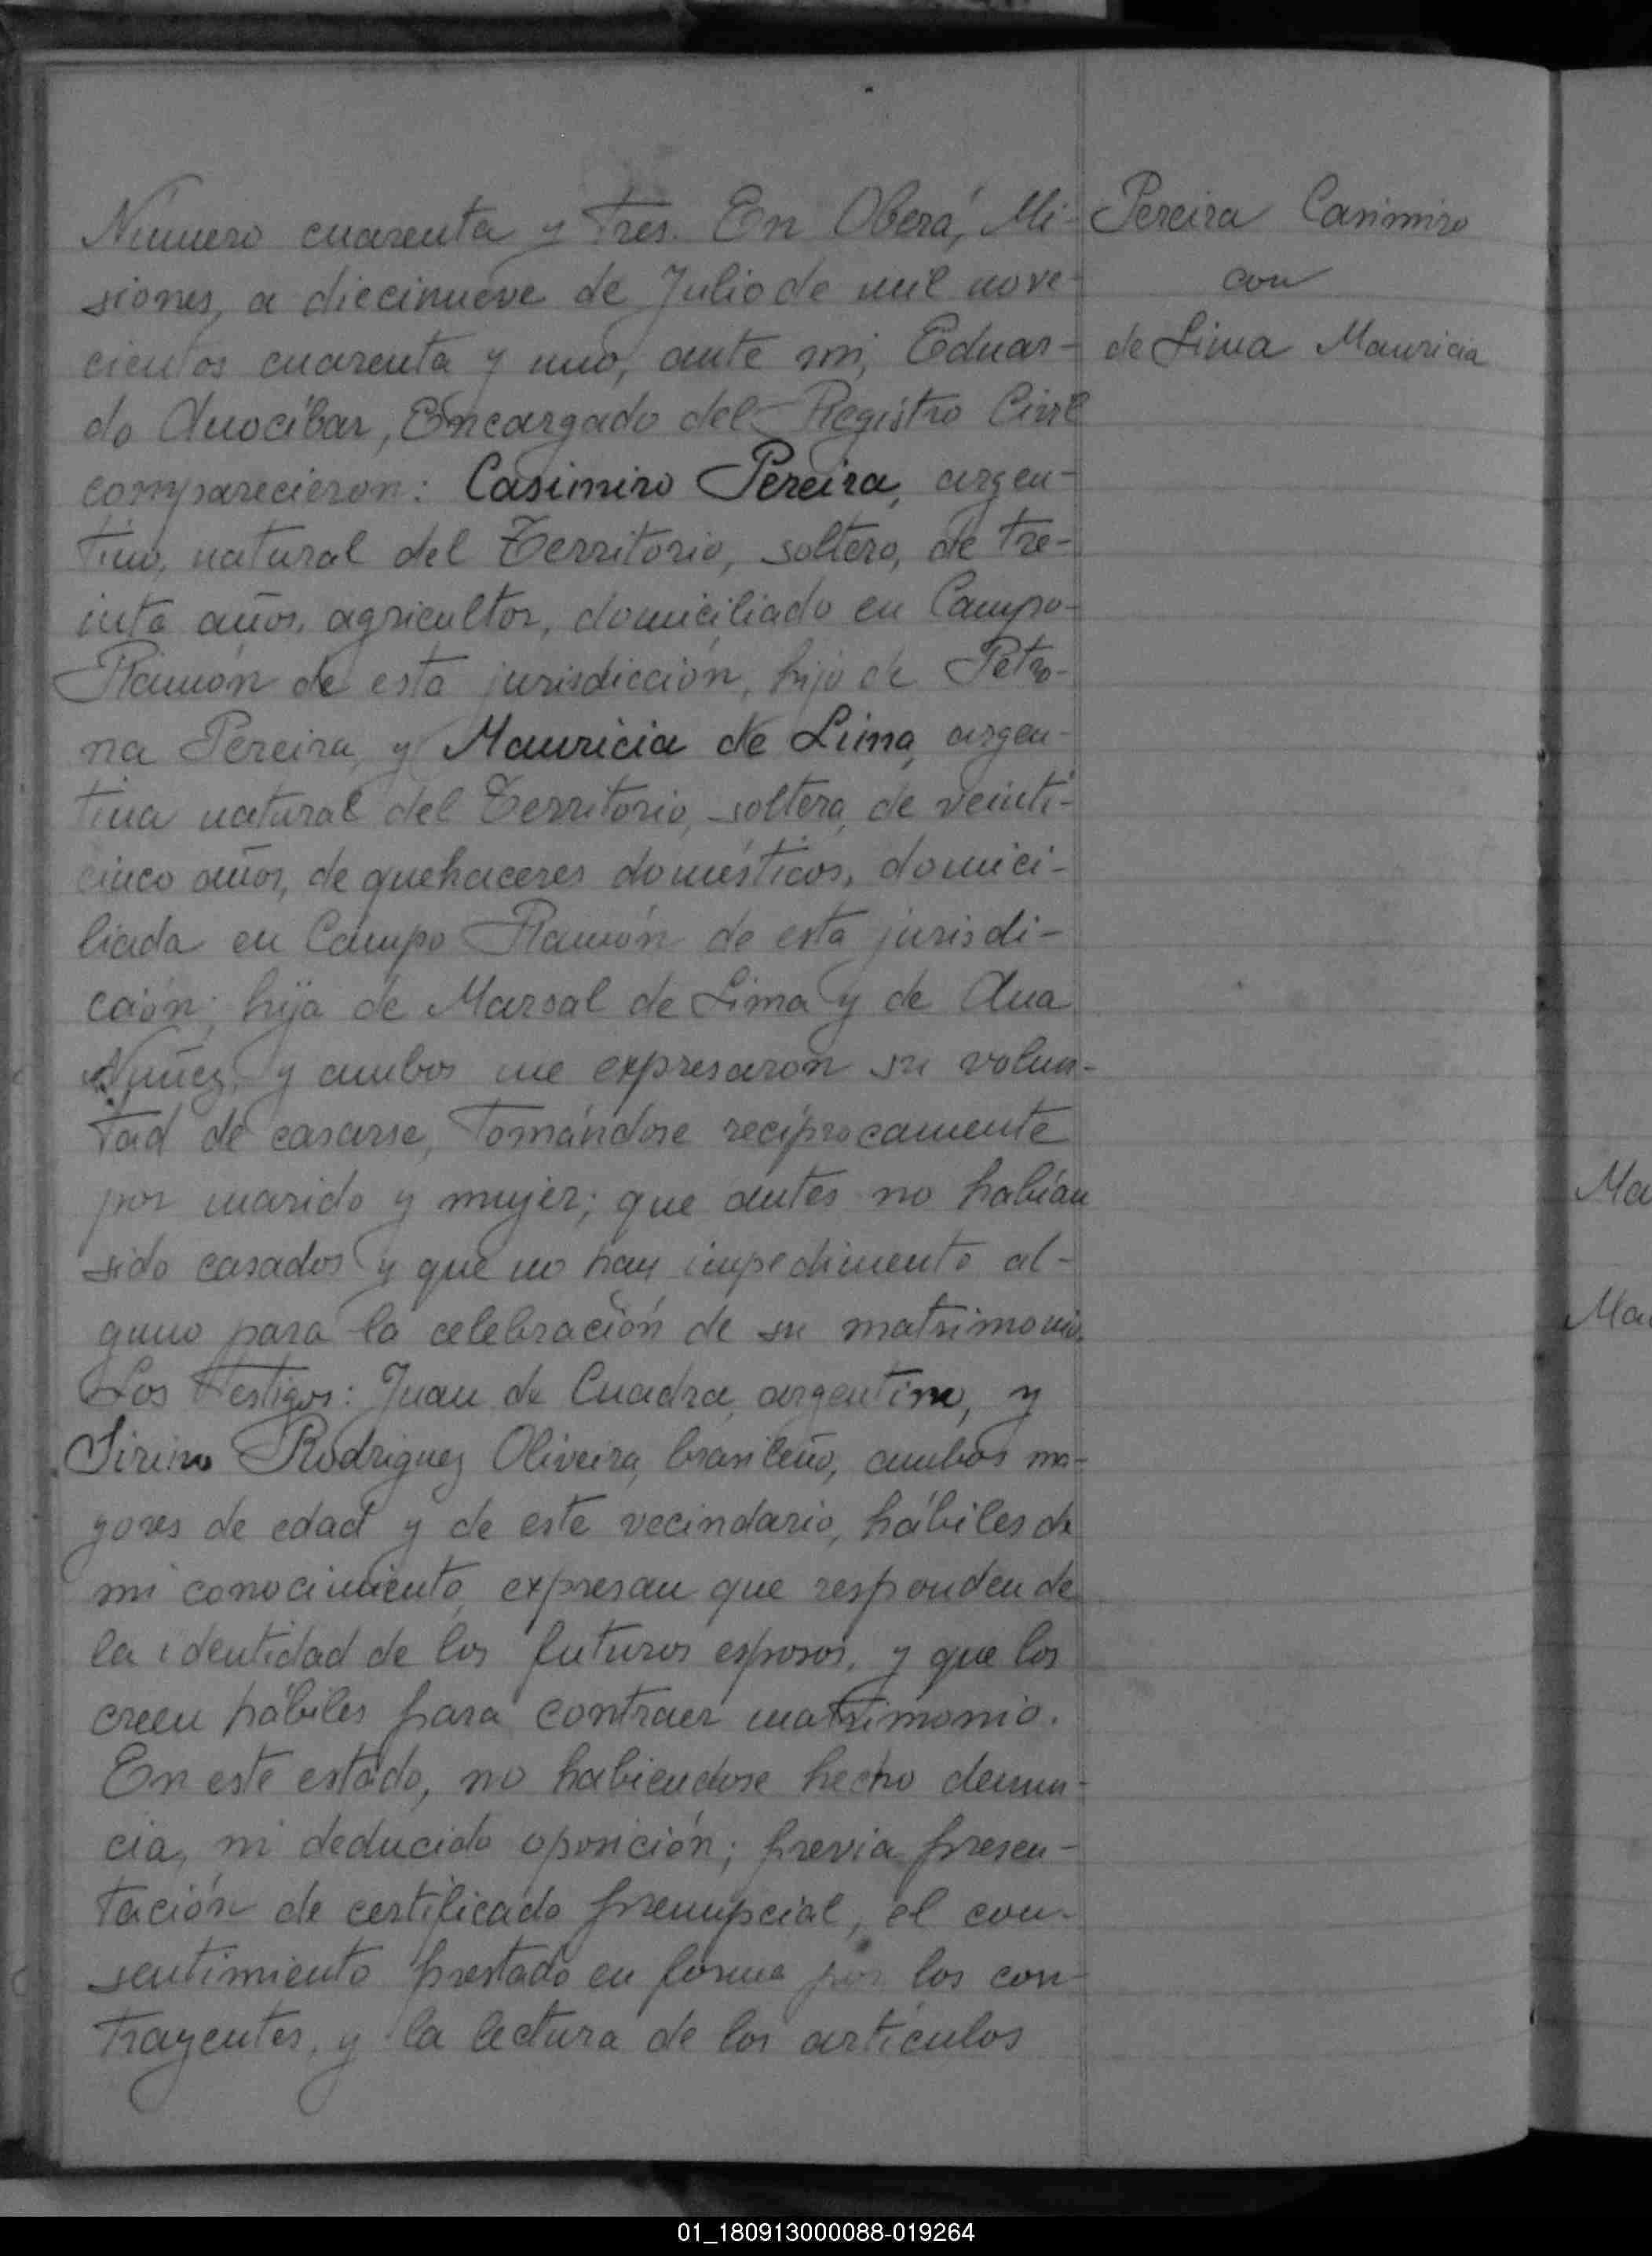 Número cuarenta y tres. En Oberá, Mi-
siones, a diecinueve de Julio de mil nove-
cientos cuarenta y uno, ante mi, Eduar-
do Anocibar, Encargado del Registro Civil
comparecieron: Casimiro Pereira, argen-
tino, natural del Territorio, soltero, de tre-
inta años, agricultor, domiciliado en Campo
Ramón de esta jurisdicción, hijo de Petro-
na Pereira, y Mauricia de Lima, argen-
tina natural del Territorio, soltera, de veinti-
cinco años, de quehaceres domésticos, domici-
liada en Campo Ramón de esta jurisdi-
cción; hija de Marsal de Lima y de Ana
Nuñez, y ambos me expresaron su volun-
tad de casarse, tomándose recíprocamente
por marido y mujer; que antes no habían
sido casados y que no hay impedimento al-
guno para la celebración de su matrimonio.
Los Testigos: Juan de Cuadra, argentino, y
Sirino Rodriguez Oliveira, brasileño, ambos ma-
yores de edad y de este vecindario, hábiles de
mi conocimiento, expresan que responden de
la identidad de los futuros esposos, y que los
creen hábiles para contraer matrimonio.
En este estado, no habiendose hecho denun-
cia, ni deducido oposición; previa presen-
tación de certificado prenupcial, el con-
sentimiento prestado en forma por los con-
trayentes, y la lectura de los artículos
Pereira Casimiro
con
de Lima Mauricia
Ma
Ma
01_180913000088-019264